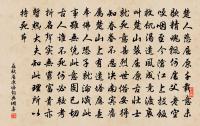 楚人悲屈原千載意未
歇精魂飄何處父老空
哽咽至今滄江上投飯
救飢渴遺風成競渡哀
叫楚山裂屈原古壯士
就死意甚烈世俗安得
知眷眷不忍決南賓舊
屬楚山上有遺塔應是
奉佛人恐子就淪滅此
事雖無憑此意固已切
古人誰不死何必較考
折名聲實無窮富貴亦
暫熱大夫知此理所以
持死節